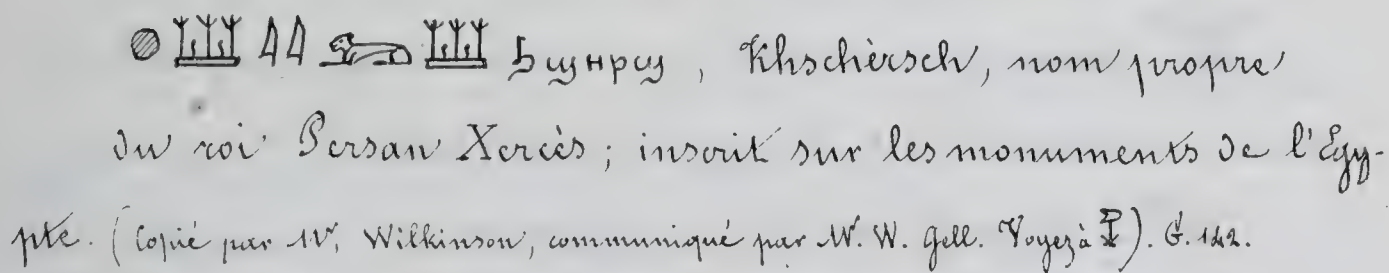 𓐍𓆷𓇋𓇋𓃭𓆷 ϧϣⲏⲣϣ, Khschèrsch, nom propre
du roi Persan Xercès; inscrit sur les monuments de l'Egy-
pte. (Copié par Mr. Wilkinson, communiqué par M. W. Gell. Voyez à ). G. 142.